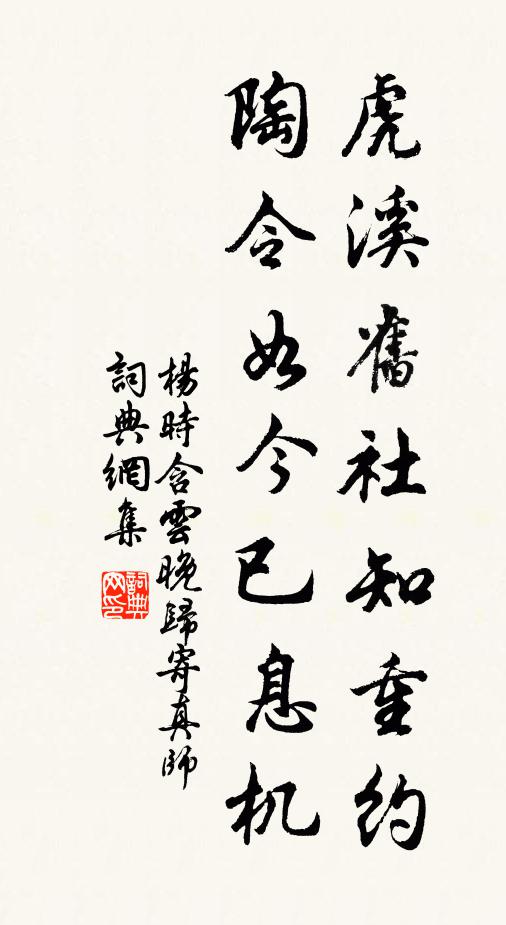 虎溪舊社知重約
陶令如今已息机
楊時含雲晚歸寄真師
詞典網集
詞典网印